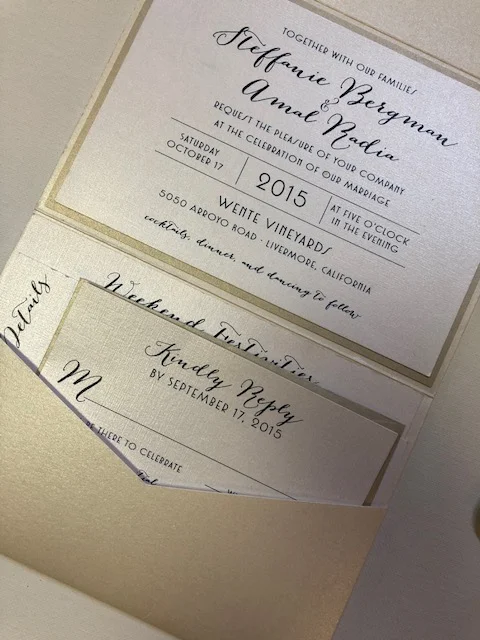 TOGETHER WITH OUR FAMILIES
Steffanie Bergman
&
Amal Radia
REQUEST THE PLEASURE OF YOUR COMPANY
AT THE CELEBRATION OF OUR MARRIAGE
SATURDAY
OCTOBER 17
2015
AT FIVE O'CLOCK
IN THE EVENING
WENTE VINEYARDS
5050 ARROYO ROAD · LIVERMORE, CALIFORNIA
cocktails, dinner, and dancing to follow
Details
Weekend Festivities
Kindly Reply
BY SEPTEMBER 17, 2015
M
BE THERE TO CELEBRATE